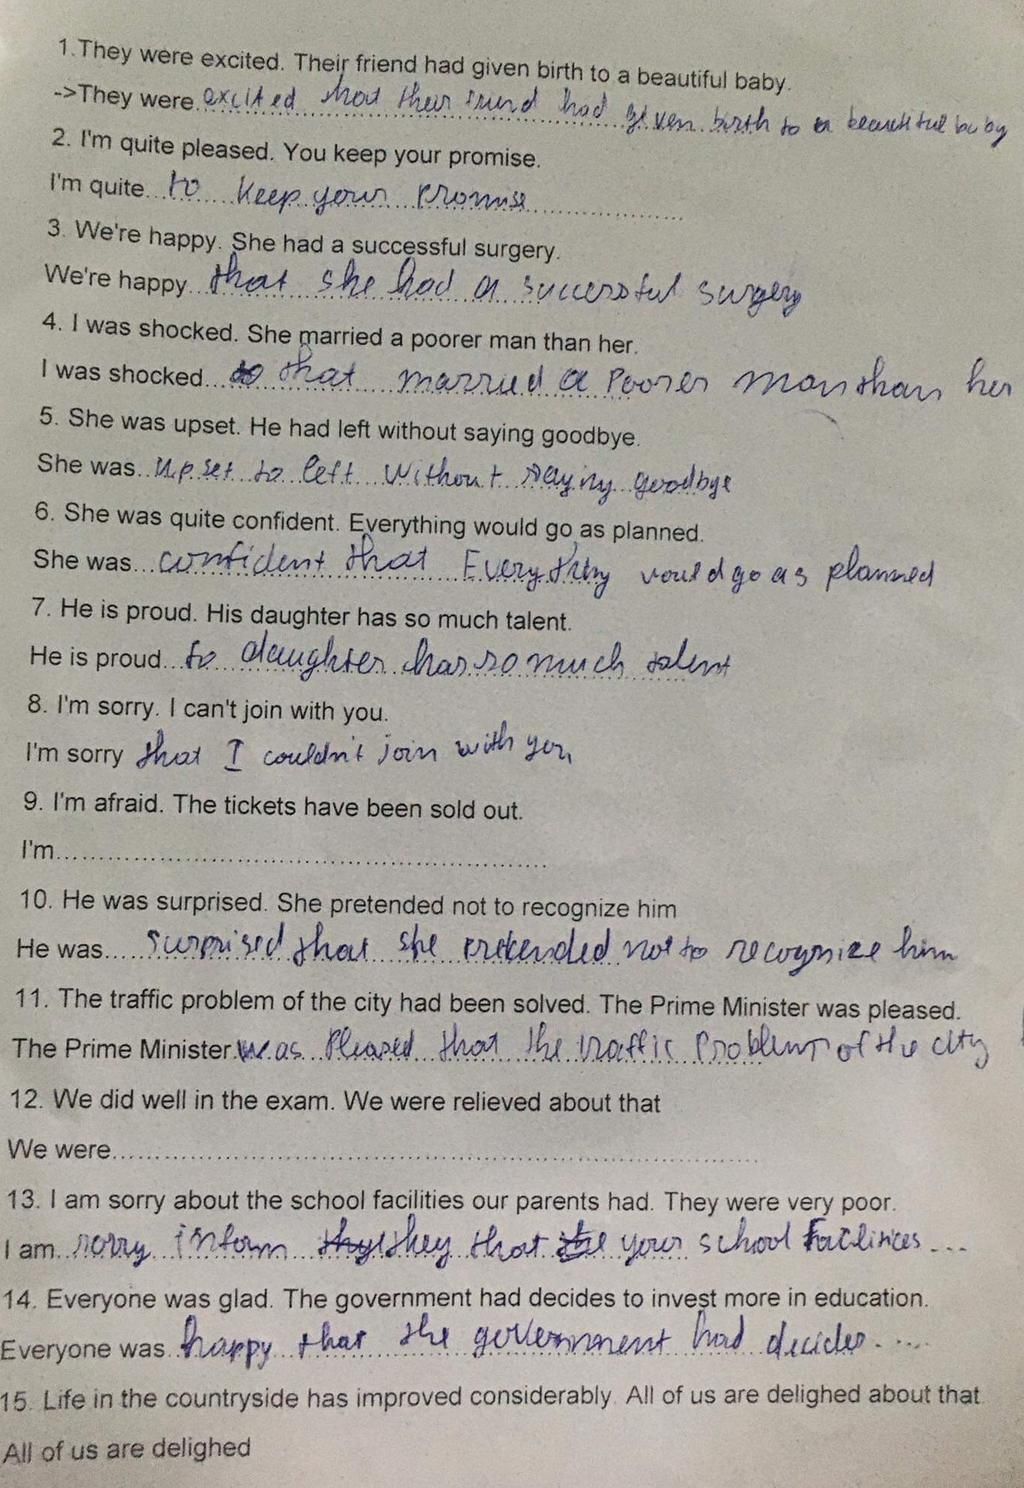 1.They were excited. Their friend had given birth to a beautiful baby.
->They were excited that their friend had given birth to a beautiful baby
2. I'm quite pleased. You keep your promise.
I'm quite...to keep your promise
3. We're happy. She had a successful surgery.
We're happy that she had a successful surgery
4. I was shocked. She married a poorer man than her.
I was shocked... that married a poorer man than her
5. She was upset. He had left without saying goodbye.
She was...upset to left without saying goodbye
6. She was quite confident. Everything would go as planned.
She was...confident that Everything would go as planned
7. He is proud. His daughter has so much talent.
He is proud...to daughter has so much talent
8. I'm sorry. I can't join with you.
I'm sorry that I couldn't join with you
9. I'm afraid. The tickets have been sold out.
I'm...
10. He was surprised. She pretended not to recognize him
He was... surprised that she pretended not to recognize him
11. The traffic problem of the city had been solved. The Prime Minister was pleased.
The Prime Minister was pleased that the traffic problem of the city
12. We did well in the exam. We were relieved about that
We were...
13. I am sorry about the school facilities our parents had. They were very poor.
I am sorry inform they that your school facilities ...
14. Everyone was glad. The government had decides to invest more in education.
Everyone was happy that the government had decides ....
15. Life in the countryside has improved considerably. All of us are delighed about that
All of us are delighed